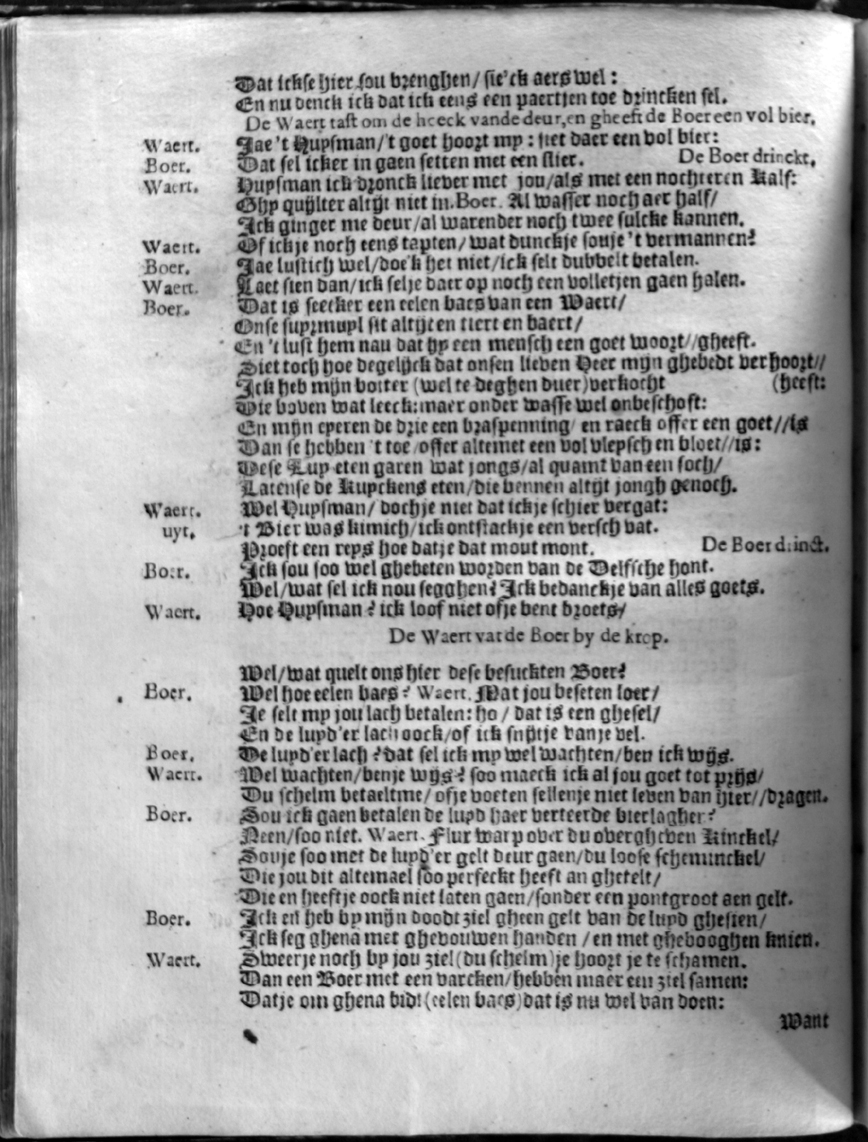 Dat ickse hier sou brenghen/ sie'ck aers wel:
En nu denck ick dat ick eens een paertjen toe drincken sel.
De Waert tast om de hoeck vande deur, en gheeft de Boer een vol bier.
Waert. Jae 't Huysman/ 't goet hoort my: siet daer een vol bier:
Boer. Dat sel icker in gaen setten met een stier. De Boer drinckt.
Waert. Huysman ick dronck liever met jou/ als met een nochteren Kalf:
Ghy quijlter altijt niet in. Boer. Al wasser noch aer half/
Ick ginger me deur/ al warender noch twee sulcke kannen.
Waert. Of ickje noch eens tapten/ wat dunckje souje 't vermannen?
Boer. Jae lustich wel/ doe'k het niet/ ick selt dubbelt betalen.
Waert. Laet sien dan/ ick selje daer op noch een volletjen gaen halen.
Boer. Dat is seecker een eelen baes van een Waert/
Onse suyrmuyl sit altijt en tiert en baert/
En 't lust hem nau dat hy een mensch een goet woort//gheeft.
Siet toch hoe degelijck dat onsen lieven Heer mijn ghebedt verhoort//
Ick heb mijn botter (wel te deghen duer) verkocht (heeft:
Die boven wat leeck: maer onder wasse wel onbeschoft:
En mijn eyeren de drie een braspenning/ en raeck offer een goet//is
Dan se hebben 't toe/ offer altemet een vol vleysch en bloet//is:
Dese Luy eten garen wat jongs/ al quamt van een soch/
Latense de Kuyckens eten/ die bennen altijt jongh genoch.
Waert. Wel Huysman/ dochje niet dat ickje schier vergat:
uyt. 't Bier was kimich/ ick ontstackje een versch vat.
Proeft een reys hoe datje dat mout mont. De Boer drinct.
Boer. Ick sou soo wel ghebeten worden van de Delfsche hont.
Wel/ wat sel ick nou segghen? Ick bedanckje van alles goets.
Waert. Hoe Huysman? ick loof niet ofje bent broets/
De Waert vat de Boer by de krop.
Wel/ wat quelt ons hier dese besuckten Boer?
Boer. Wel hoe eelen baes? Waert. Wat jou beseten loer/
Je selt my jou lach betalen: ho/ dat is een ghesel/
En de luyd'er lach oock/ of ick snijtje vanje vel.
Boer. De luyd'er lach? dat sel ick my wel wachten/ ben ick wijs.
Waert. Wel wachten/ benje wijs? soo maeck ick al jou goet tot prijs/
Du schelm betaeltme/ ofje voeten sellenje niet leven van hier//dragen.
Boer. Sou ick gaen betalen de luyd haer verteerde bierlagher?
Neen/ soo niet. Waert. Flux warp over du overgheven Kinckel/
Souje soo met de luyd'er gelt deur gaen/ du loose scheminckel/
Die jou dit altemael soo perfeckt heeft an ghetelt/
Die en heeftje oock niet laten gaen/ sonder een pontgroot aen gelt.
Boer. Ick en heb by mijn doodt ziel gheen gelt van de luyd ghesien/
Ick seg ghena met ghevouwen handen/ en met ghebooghen knien.
Waert. Sweerje noch by jou ziel (du schelm) je hoort je te schamen.
Dan een Boer met een varcken/ hebben maer een ziel samen:
Datje om ghena bidt (eelen baes) dat is nu wel van doen:
Want